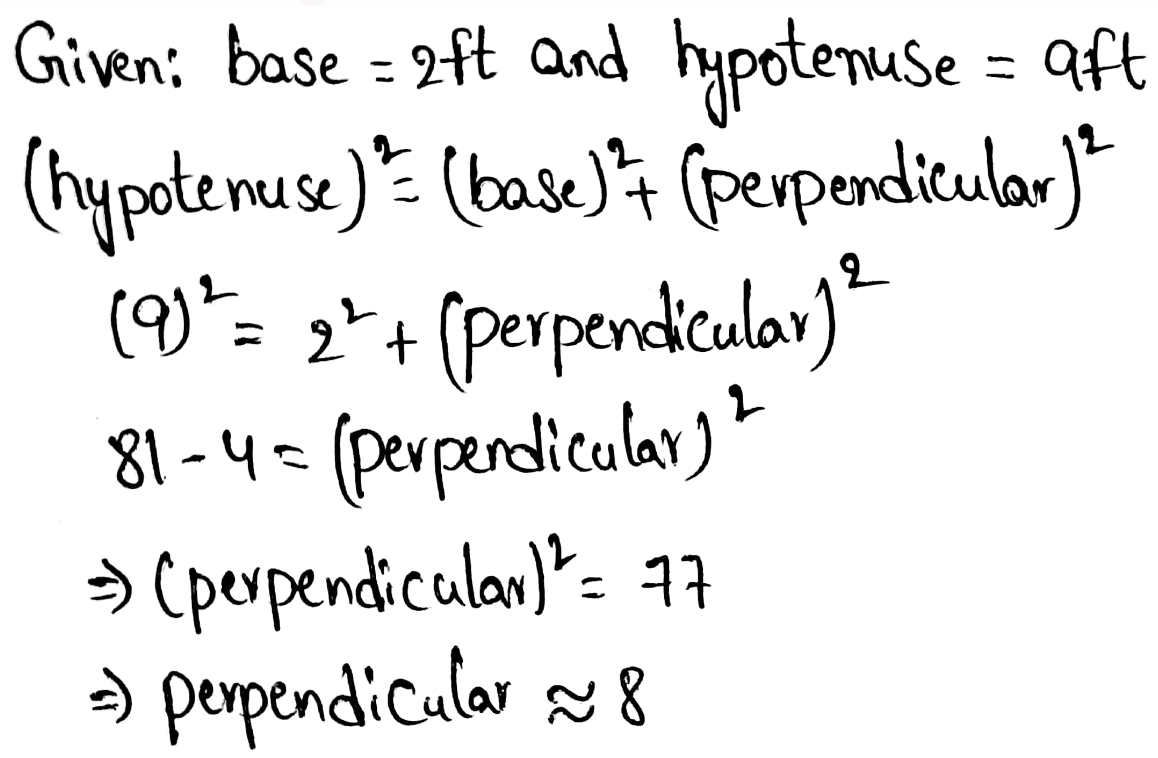 Given: base = 2ft and hypotenuse = 9ft
(hypotenuse)² = (base)² + (perpendicular)²
(9)² = 2² + (perpendicular)²
81 - 4 = (perpendicular)²
⇒ (perpendicular)² = 77
⇒ perpendicular ≈ 8